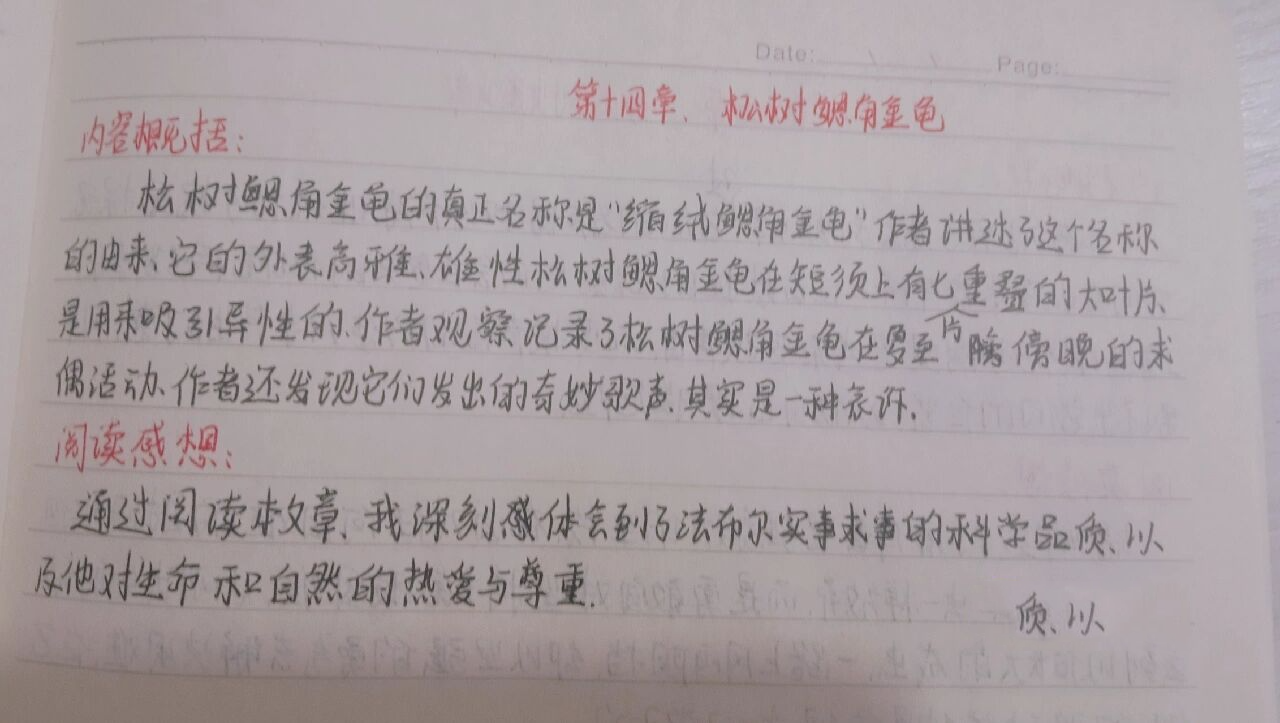 Date: / / Page:
第十四章、松树鳃角金龟
内容概括：
松树鳃角金龟的真正名称是"缩绒鳃角金龟"作者讲述了这个名称
的由来、它的外表高雅、雄性松树鳃角金龟在短须上有七重叠的大叶片、
片
是用来吸引异性的、作者观察记录了松树鳃角金龟在夏至 傍晚的求
偶活动、作者还发现它们发出的奇妙歌声、其实是一种哀诉.
阅读感想：
通过阅读本文章、我深刻感体会到了法布尔实事求事的科学品质、以
及他对生命和自然的热爱与尊重.
质、以